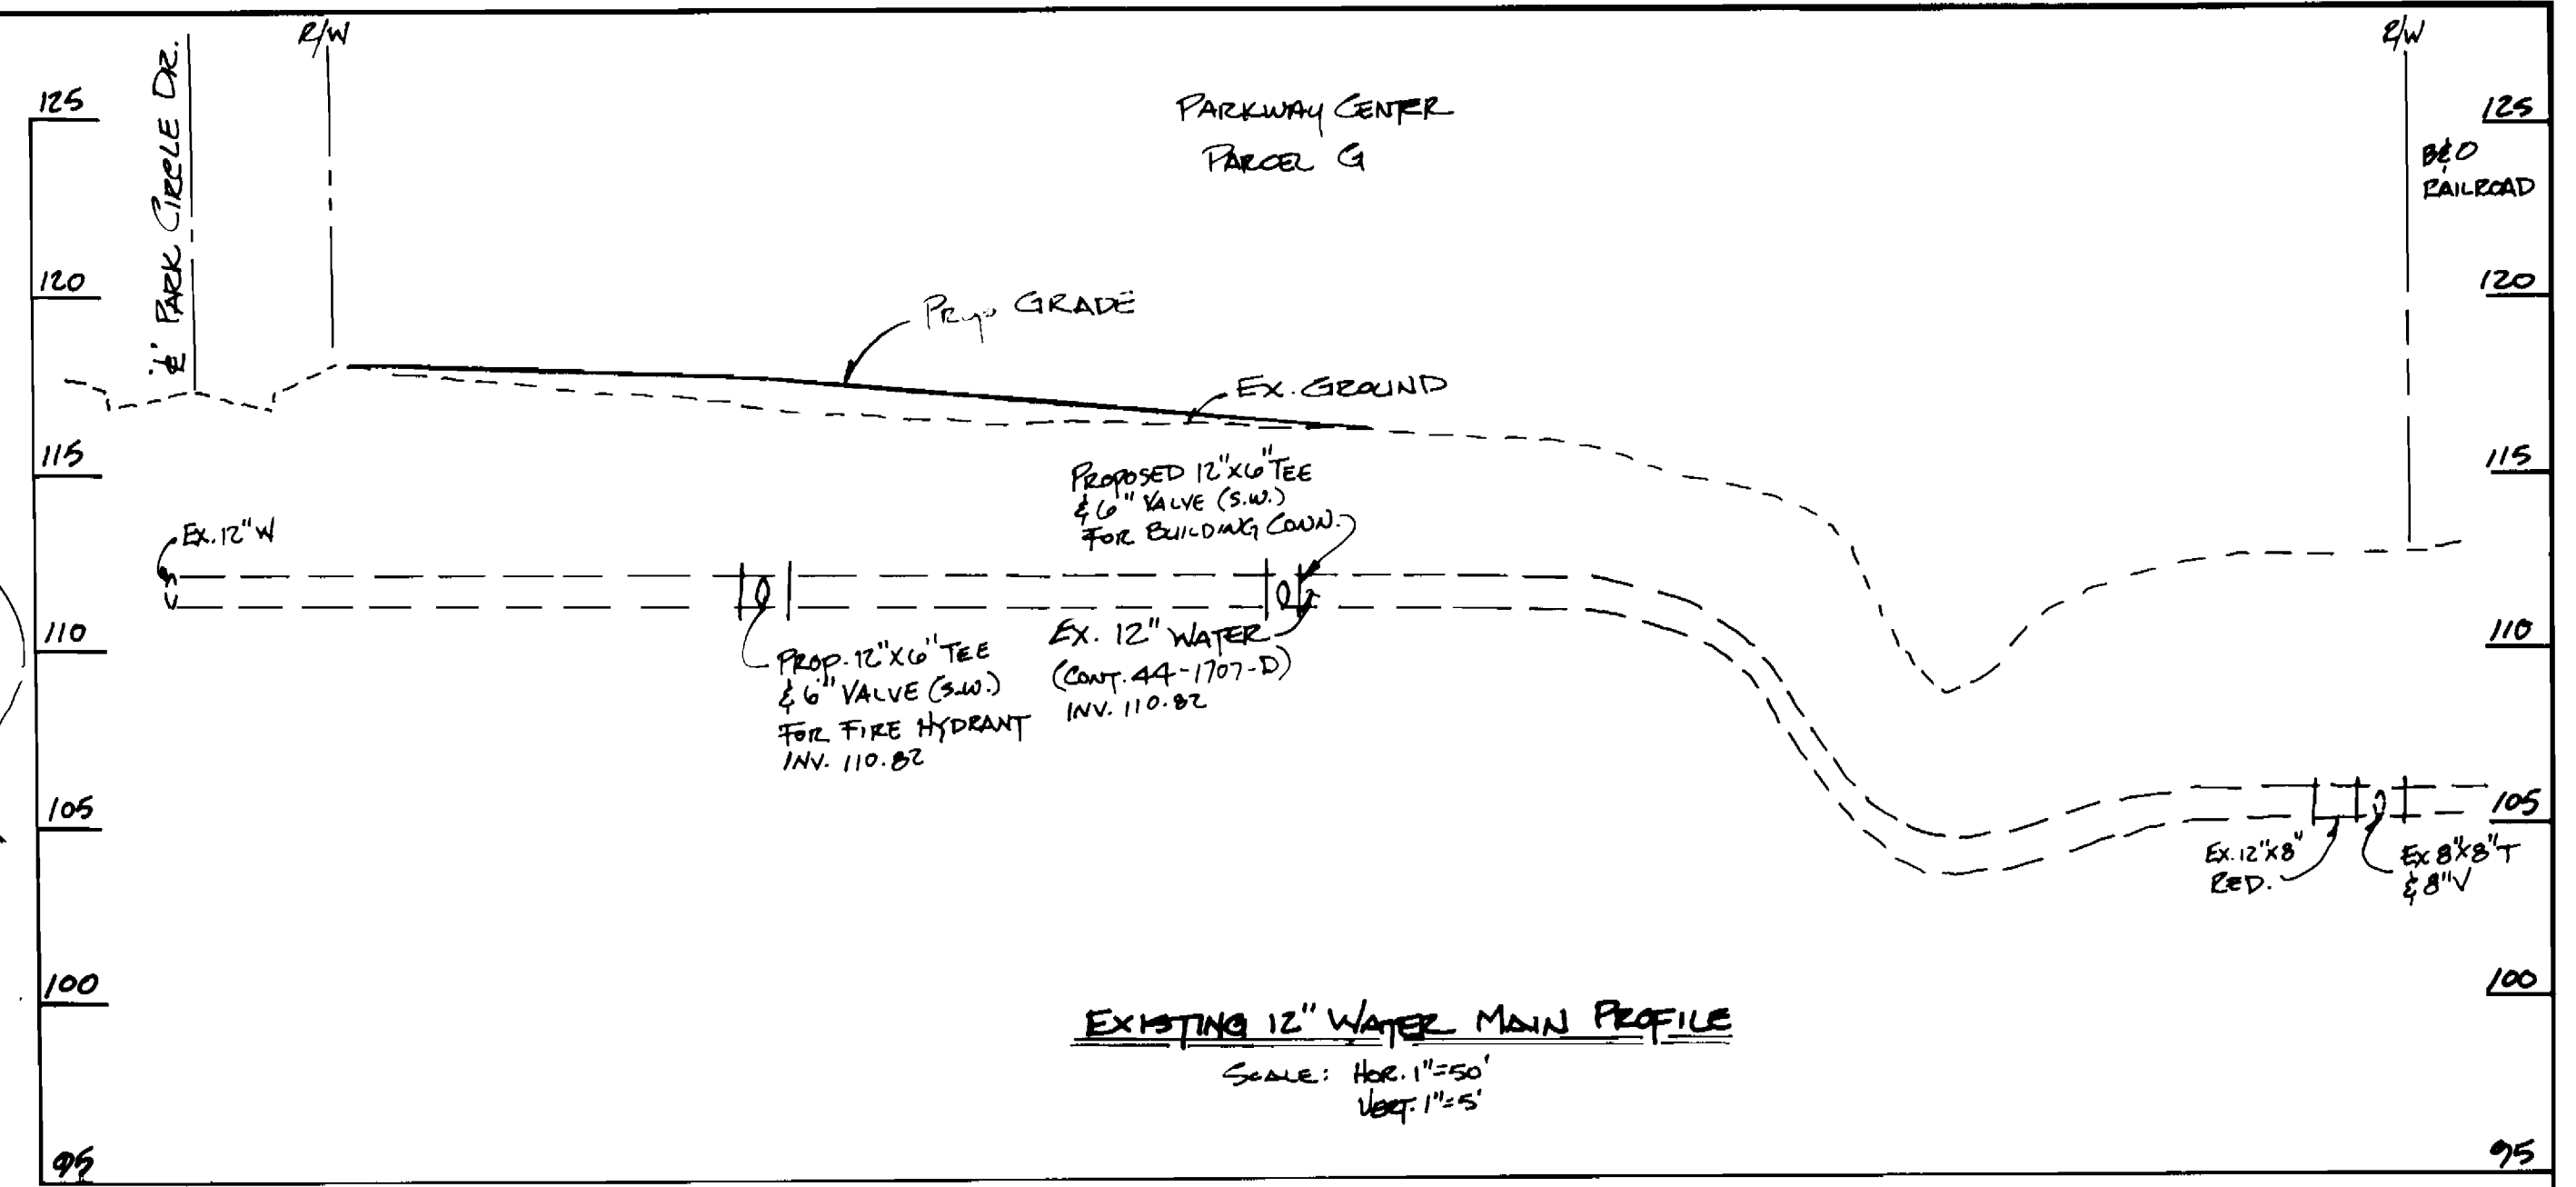 R/W
R/W
℄ PARK CIRCLE DR.
PARKWAY CENTER
PARCEL G
B&O
RAILROAD
125
125
120
120
PROP GRADE
EX. GROUND
115
115
PROPOSED 12"X6" TEE
& 6" VALVE (S.W.)
FOR BUILDING CONN.
EX. 12" W
110
110
PROP. 12"X6" TEE
& 6" VALVE (S.W.)
FOR FIRE HYDRANT
INV. 110.82
EX. 12" WATER
(CONT. 44-1707-D)
INV. 110.82
105
105
EX. 12"X8"
RED.
EX 8"X8" T
& 8" V
100
100
EXISTING 12" WATER MAIN PROFILE
SCALE: HOR. 1"=50'
VERT. 1"=5'
95
95